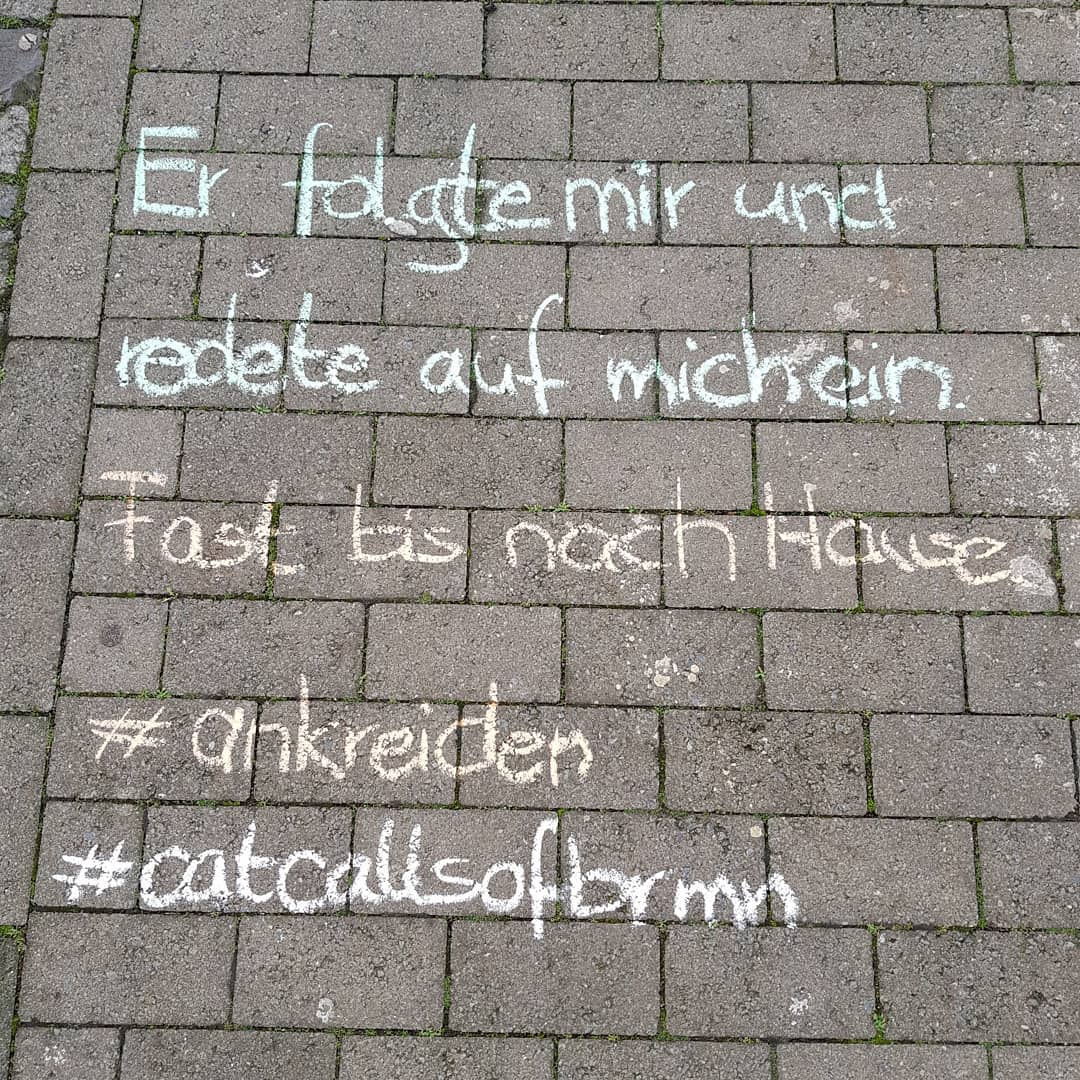 Er folgte mir und
redete auf mich ein.
Fast bis nach Hause.
#ankreiden
#catcallsofbrmn